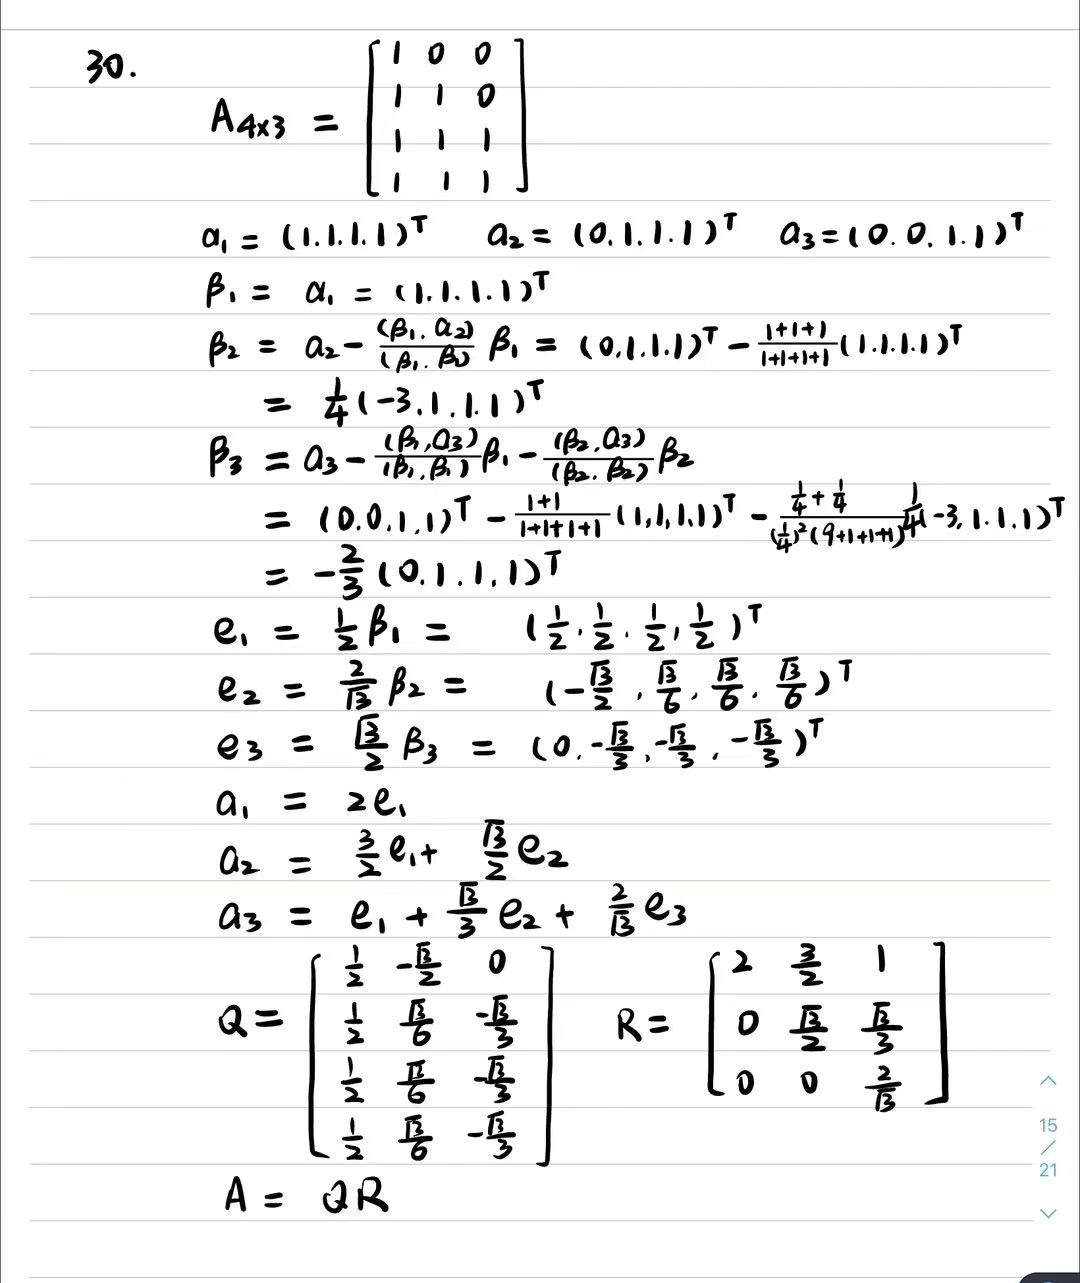 30.
A₄ₓ₃ = [ 1 0 0
1 1 0
1 1 1
1 1 1 ]
α₁ = (1.1.1.1)ᵀ a₂ = (0.1.1.1)ᵀ a₃ = (0.0.1.1)ᵀ
β₁ = α₁ = (1.1.1.1)ᵀ
β₂ = a₂ - (β₁.a₂)/(β₁.β₁) β₁ = (0.1.1.1)ᵀ - (1+1+1)/(1+1+1+1) (1.1.1.1)ᵀ
= 1/4 (-3.1.1.1)ᵀ
β₃ = a₃ - (β₁,a₃)/(β₁,β₁) β₁ - (β₂,a₃)/(β₂.β₂) β₂
= (0.0.1,1)ᵀ - (1+1)/(1+1+1+1) (1,1,1,1)ᵀ - (1/4 + 1/4)/((1/4)²(9+1+1+1)) 1/4(-3.1.1.1)ᵀ
= -2/3 (0.1.1.1)ᵀ
e₁ = 1/2 β₁ = (1/2.1/2.1/2,1/2)ᵀ
e₂ = 2/√3 β₂ = (-√3/2.√3/6.√3/6.√3/6)ᵀ
e₃ = √3/2 β₃ = (0.-√3/3,-√3/3.-√3/3)ᵀ
a₁ = 2e₁
a₂ = 3/2 e₁ + √3/2 e₂
a₃ = e₁ + √3/3 e₂ + 2/√3 e₃
Q = [ 1/2 -√3/2 0
1/2 √3/6 -√3/3
1/2 √3/6 -√3/3
1/2 √3/6 -√3/3 ]
R = [ 2 3/2 1
0 √3/2 √3/3
0 0 2/√3 ]
A = QR
15
/
21